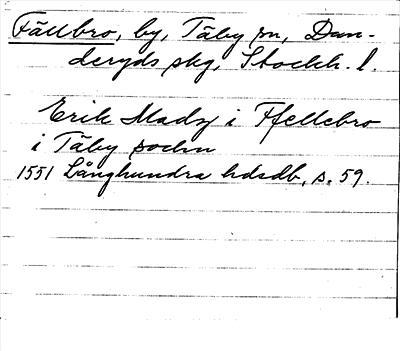 Fällbro, by, Täby sn, Dan-
deryds skg, Stockh. l.
Erik Madz i Ffellebro
i Täby sochn
1551 Långhundra hdsdb, s. 59.